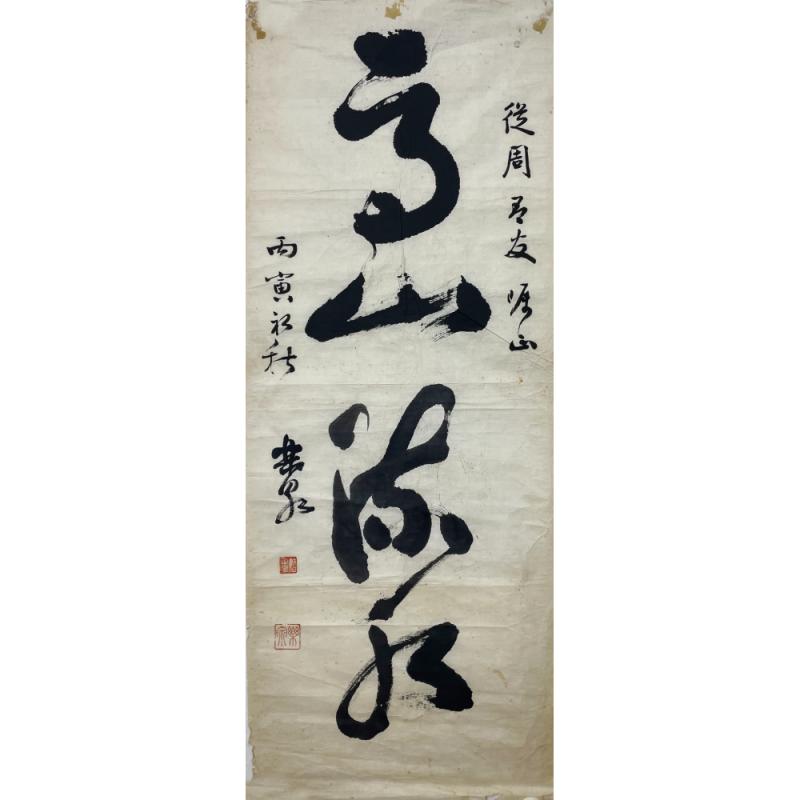 從周吾友囑正
高山流水
丙寅初秋
樂泉